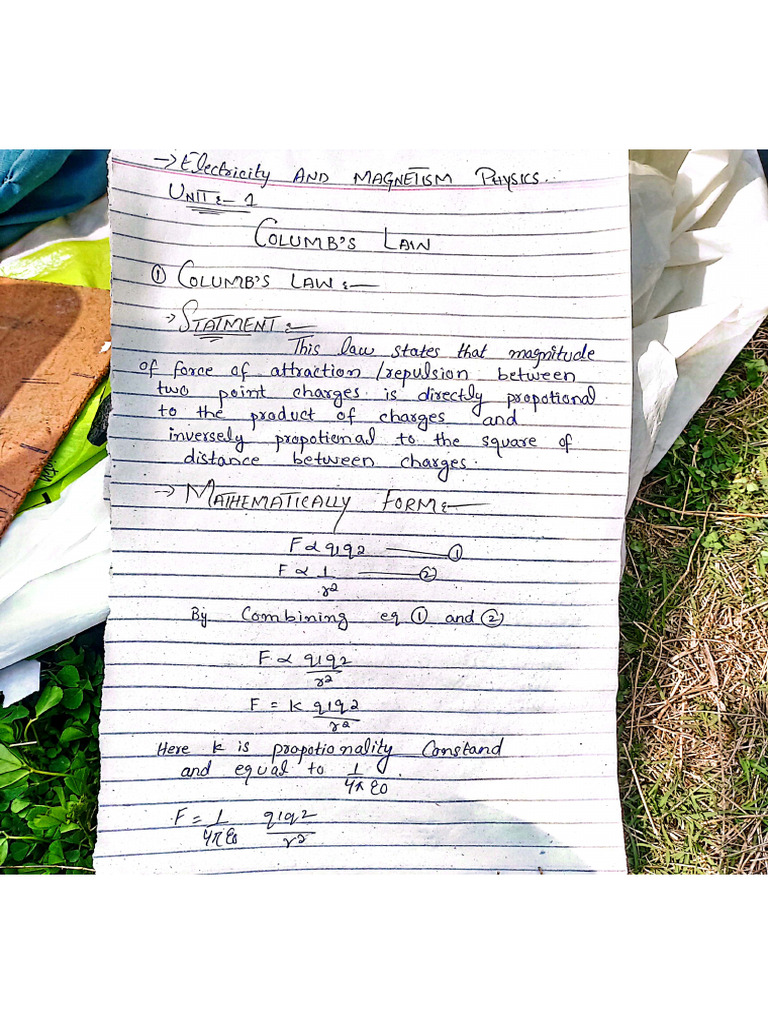 → Electricity AND MAGNETISM PHYSICS.
UNIT:- 1
COLUMB'S LAW
① COLUMB'S LAW :-
→ STATMENT :-
This law states that magnitude
of force of attraction /repulsion between
two point charges is directly propotional
to the product of charges and
inversely propotional to the square of
distance between charges.
→ MATHEMATICALLY FORM :-
F ∝ q1q2 —— ①
F ∝ 1/r2 —— ②
By Combining eq ① and ②
F ∝ q1q2/r2
F = K q1q2/r2
Here k is propotionality Constand
and equal to 1/4π ε0.
F = 1/4π ε0 q1q2/r2